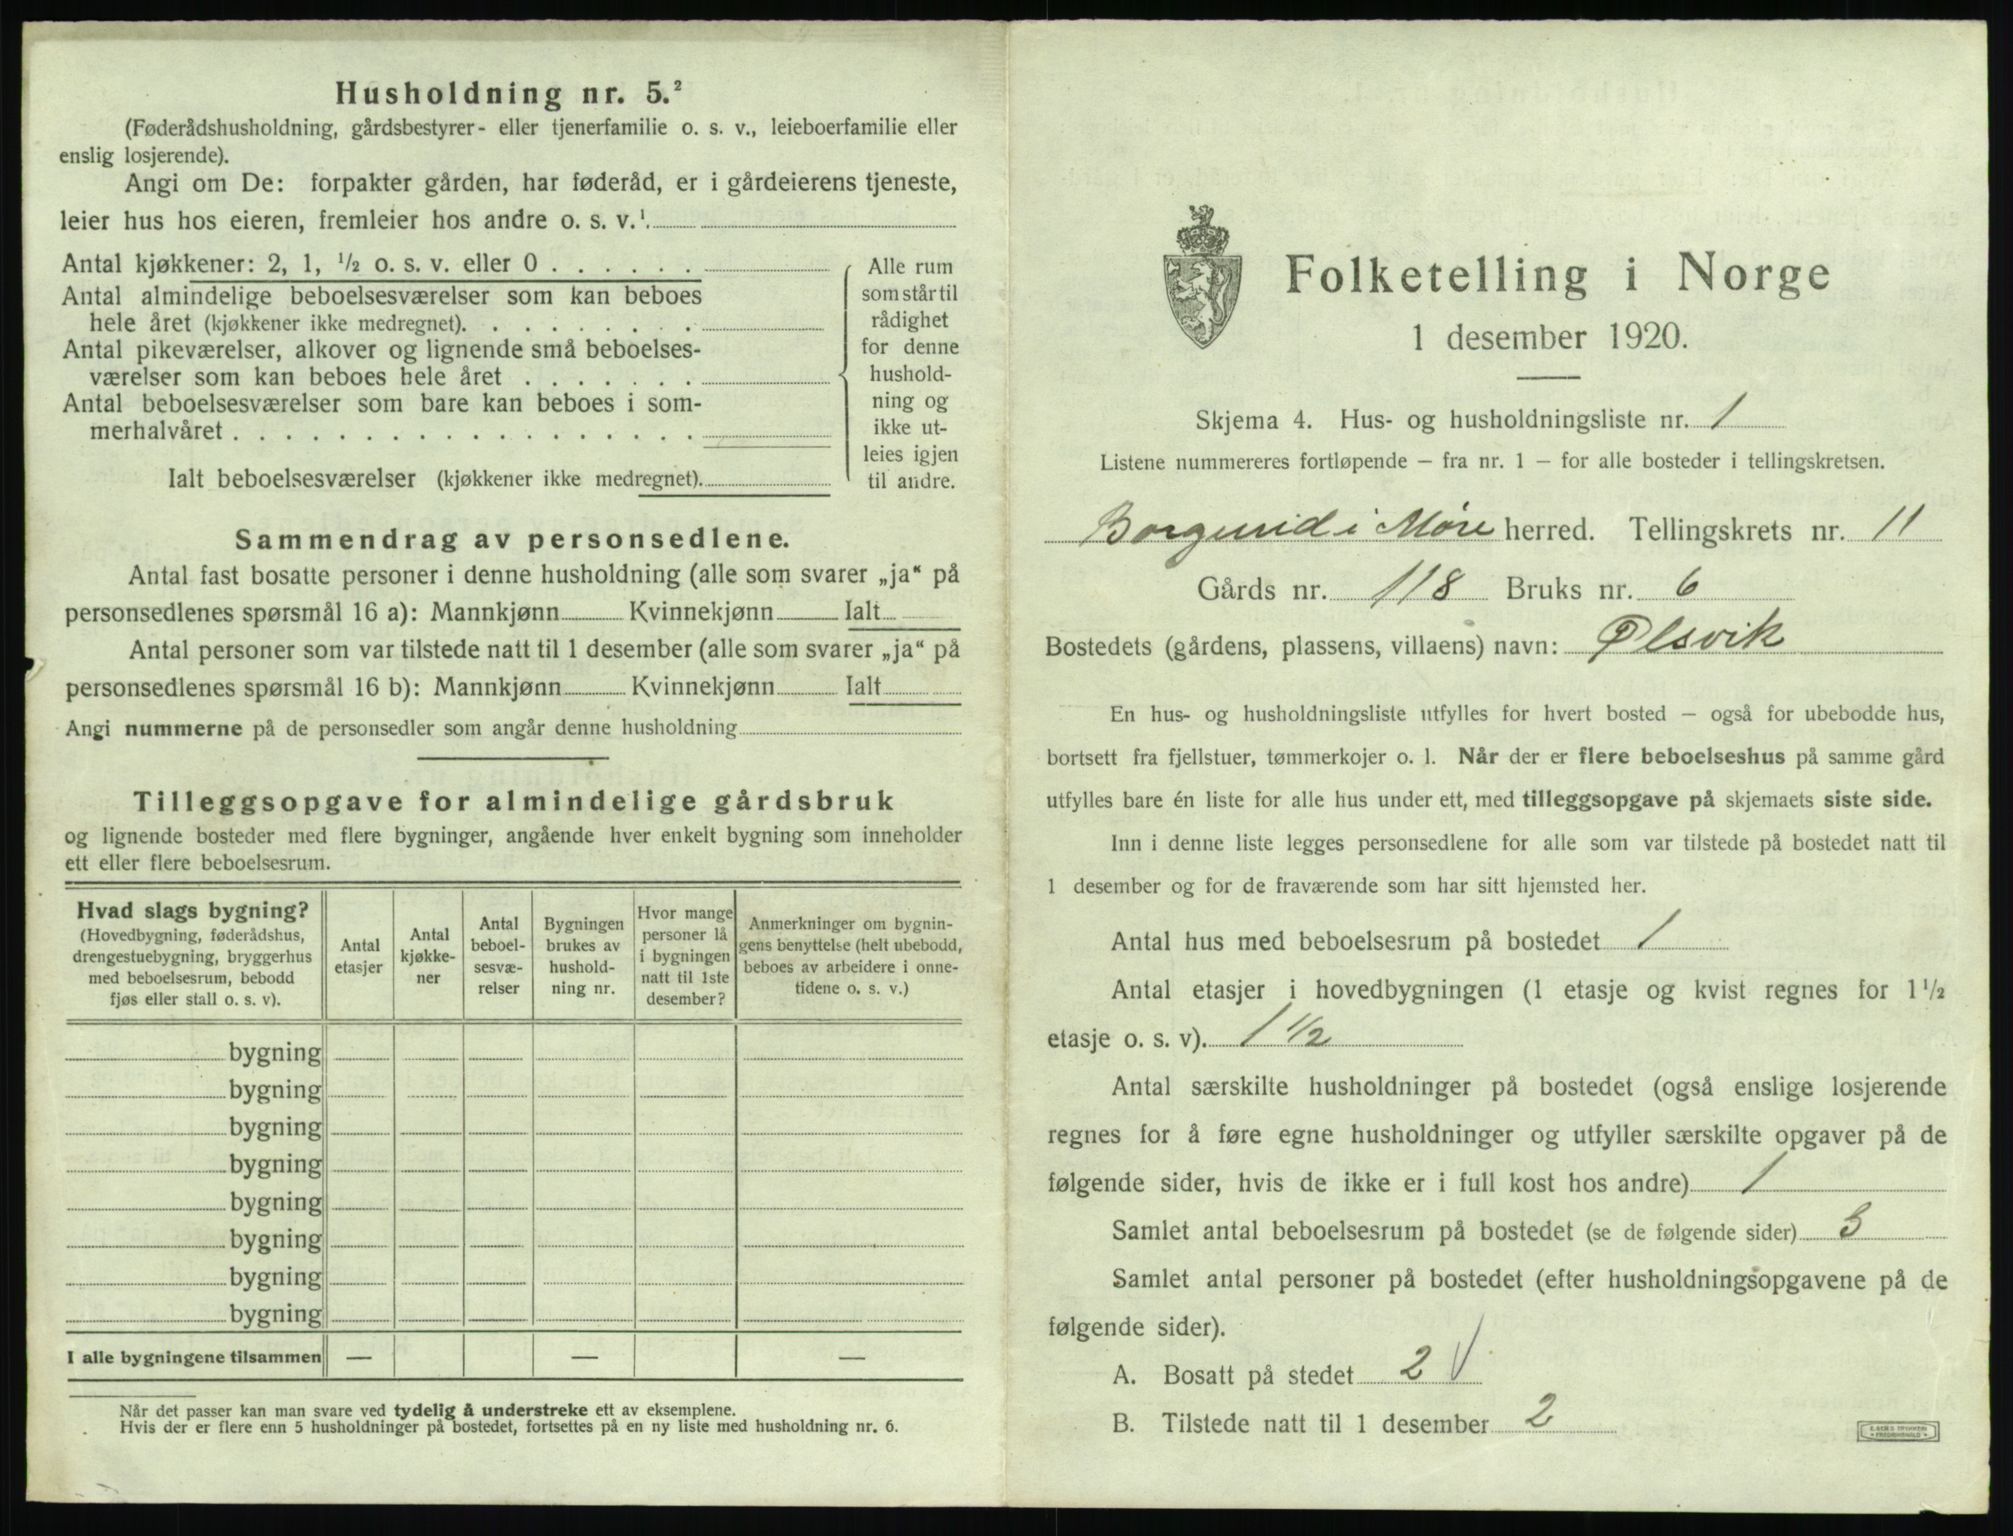 Husholdning nr. 5.²
(Føderådshusholdning, gårdsbestyrer- eller tjenerfamilie o. s. v., leieboerfamilie eller
enslig losjerende).
Angi om De: forpakter gården, har føderåd, er i gårdeierens tjeneste,
leier hus hos eieren, fremleier hos andre o. s. v.¹
Antal kjøkkener: 2, 1, ½ o. s. v. eller 0 . . . . . .
Antal almindelige beboelsesværelser som kan beboes
hele året (kjøkkener ikke medregnet). . . . . . . . .
Antal pikeværelser, alkover og lignende små beboelses-
værelser som kan beboes hele året . . . . . . .
Antal beboelsesværelser som bare kan beboes i som-
merhalvåret . . . . . . . . . . . . . . . . . .
Ialt beboelsesværelser (kjøkkener ikke medregnet).
Alle rum
som står til
rådighet
for denne
hushold-
ning og
ikke ut-
leies igjen
til andre.
Sammendrag av personsedlene.
Antal fast bosatte personer i denne husholdning (alle som svarer „ja“ på
personsedlenes spørsmål 16 a): Mannkjønn Kvinnekjønn Ialt
Antal personer som var tilstede natt til 1 desember (alle som svarer „ja“ på
personsedlenes spørsmål 16 b): Mannkjønn Kvinnekjønn Ialt
Angi nummerne på de personsedler som angår denne husholdning
Tilleggsopgave for almindelige gårdsbruk
og lignende bosteder med flere bygninger, angående hver enkelt bygning som inneholder
ett eller flere beboelsesrum.
Hvad slags bygning?
(Hovedbygning, føderådshus,
drengestuebygning, bryggerhus
med beboelsesrum, bebodd
fjøs eller stall o. s. v).
Antal
etasjer
Antal
kjøkke-
ner
Antal
beboel-
sesvæ-
relser
Bygningen
brukes av
hushold-
ning nr.
Hvor mange
personer lå
i bygningen
natt til 1ste
desember?
Anmerkninger om bygnin-
gens benyttelse (helt ubebodd,
beboes av arbeidere i onne-
tidene o. s. v.)
bygning
bygning
bygning
bygning
bygning
bygning
bygning
bygning
I alle bygningene tilsammen — — —
Når det passer kan man svare ved tydelig å understreke ett av eksemplene.
Hvis der er flere enn 5 husholdninger på bostedet, fortsettes på en ny liste med husholdning nr. 6.
Folketelling i Norge
1 desember 1920.
Skjema 4. Hus- og husholdningsliste nr. 1
Listene nummereres fortløpende – fra nr. 1 – for alle bosteder i tellingskretsen.
Borgund i Møre herred. Tellingskrets nr. 11
Gårds nr. 118 Bruks nr. 6
Bostedets (gårdens, plassens, villaens) navn: Ølsvik
En hus- og husholdningsliste utfylles for hvert bosted – også for ubebodde hus,
bortsett fra fjellstuer, tømmerkojer o. l. Når der er flere beboelseshus på samme gård
utfylles bare én liste for alle hus under ett, med tilleggsopgave på skjemaets siste side.
Inn i denne liste legges personsedlene for alle som var tilstede på bostedet natt til
1 desember og for de fraværende som har sitt hjemsted her.
Antal hus med beboelsesrum på bostedet 1
Antal etasjer i hovedbygningen (1 etasje og kvist regnes for 1½
etasje o. s. v). 1 ½
Antal særskilte husholdninger på bostedet (også enslige losjerende
regnes for å føre egne husholdninger og utfyller særskilte opgaver på de
følgende sider, hvis de ikke er i full kost hos andre) 1
Samlet antal beboelsesrum på bostedet (se de følgende sider) 3
Samlet antal personer på bostedet (efter husholdningsopgavene på de
følgende sider).
A. Bosatt på stedet 2 V
B. Tilstede natt til 1 desember 2